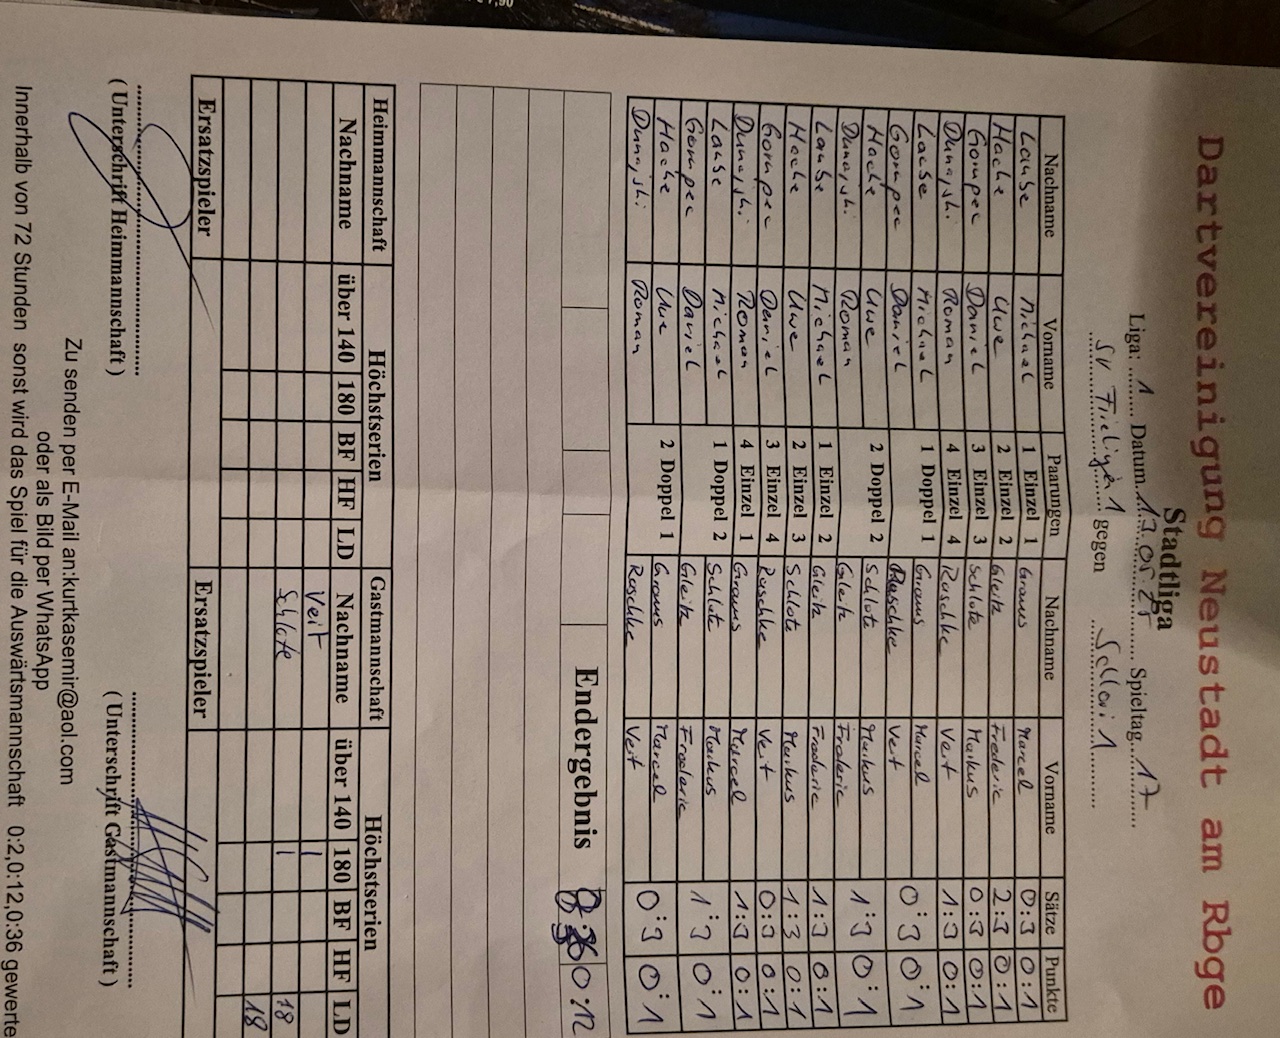 Dartvereinigung Neustadt am Rbge
Stadtliga
Liga: 1 Datum 17.05.25 Spieltag 17
SV 1 gegen 1
Nachname Vorname Paarungen Nachname Vorname Sätze Punkte
Laube Michael 1 Einzel 1 Graus Marcel 0:3 0:1
Hache Uwe 2 Einzel 2 Gleitz Frederic 2:3 0:1
Gompec Daniel 3 Einzel 3 Schlote Markus 0:3 0:1
Dunajski Roman 4 Einzel 4 Raschke Veit 1:3 0:1
Lause Michael 1 Doppel 1 Graus Marcel 0:3 0:1
Gompec Daniel Raschke Veit
Hache Uwe 2 Doppel 2 Schlote Markus 1:3 0:1
Dunajski Roman Gleitz Frederic
Laube Michael 1 Einzel 2 Gleitz Frederic 1:3 0:1
Hache Uwe 2 Einzel 3 Schlote Markus 1:3 0:1
Gompec Daniel 3 Einzel 4 Raschke Veit 0:3 0:1
Dunajski Roman 4 Einzel 1 Graus Marcel 1:3 0:1
Lause Michael 1 Doppel 2 Schlote Markus 1:3 0:1
Gompec Daniel Gleitz Frederic
Hache Uwe 2 Doppel 1 Graus Marcel 0:3 0:1
Dunajski Roman Raschke Veit
Endergebnis 0:12
Heimmannschaft Höchstserien Gastmannschaft Höchstserien
Nachname über 140 180 BF HF LD Nachname über 140 180 BF HF LD
Veit 1
Schlote 1 18
18
Ersatzspieler Ersatzspieler
( Unterschrift Heimmannschaft ) ( Unterschrift Gastmannschaft )
Zu senden per E-Mail an:kurtkasemir@aol.com
oder als Bild per WhatsApp
Innerhalb von 72 Stunden sonst wird das Spiel für die Auswärtsmannschaft 0:2,0:12,0:36 gewerte